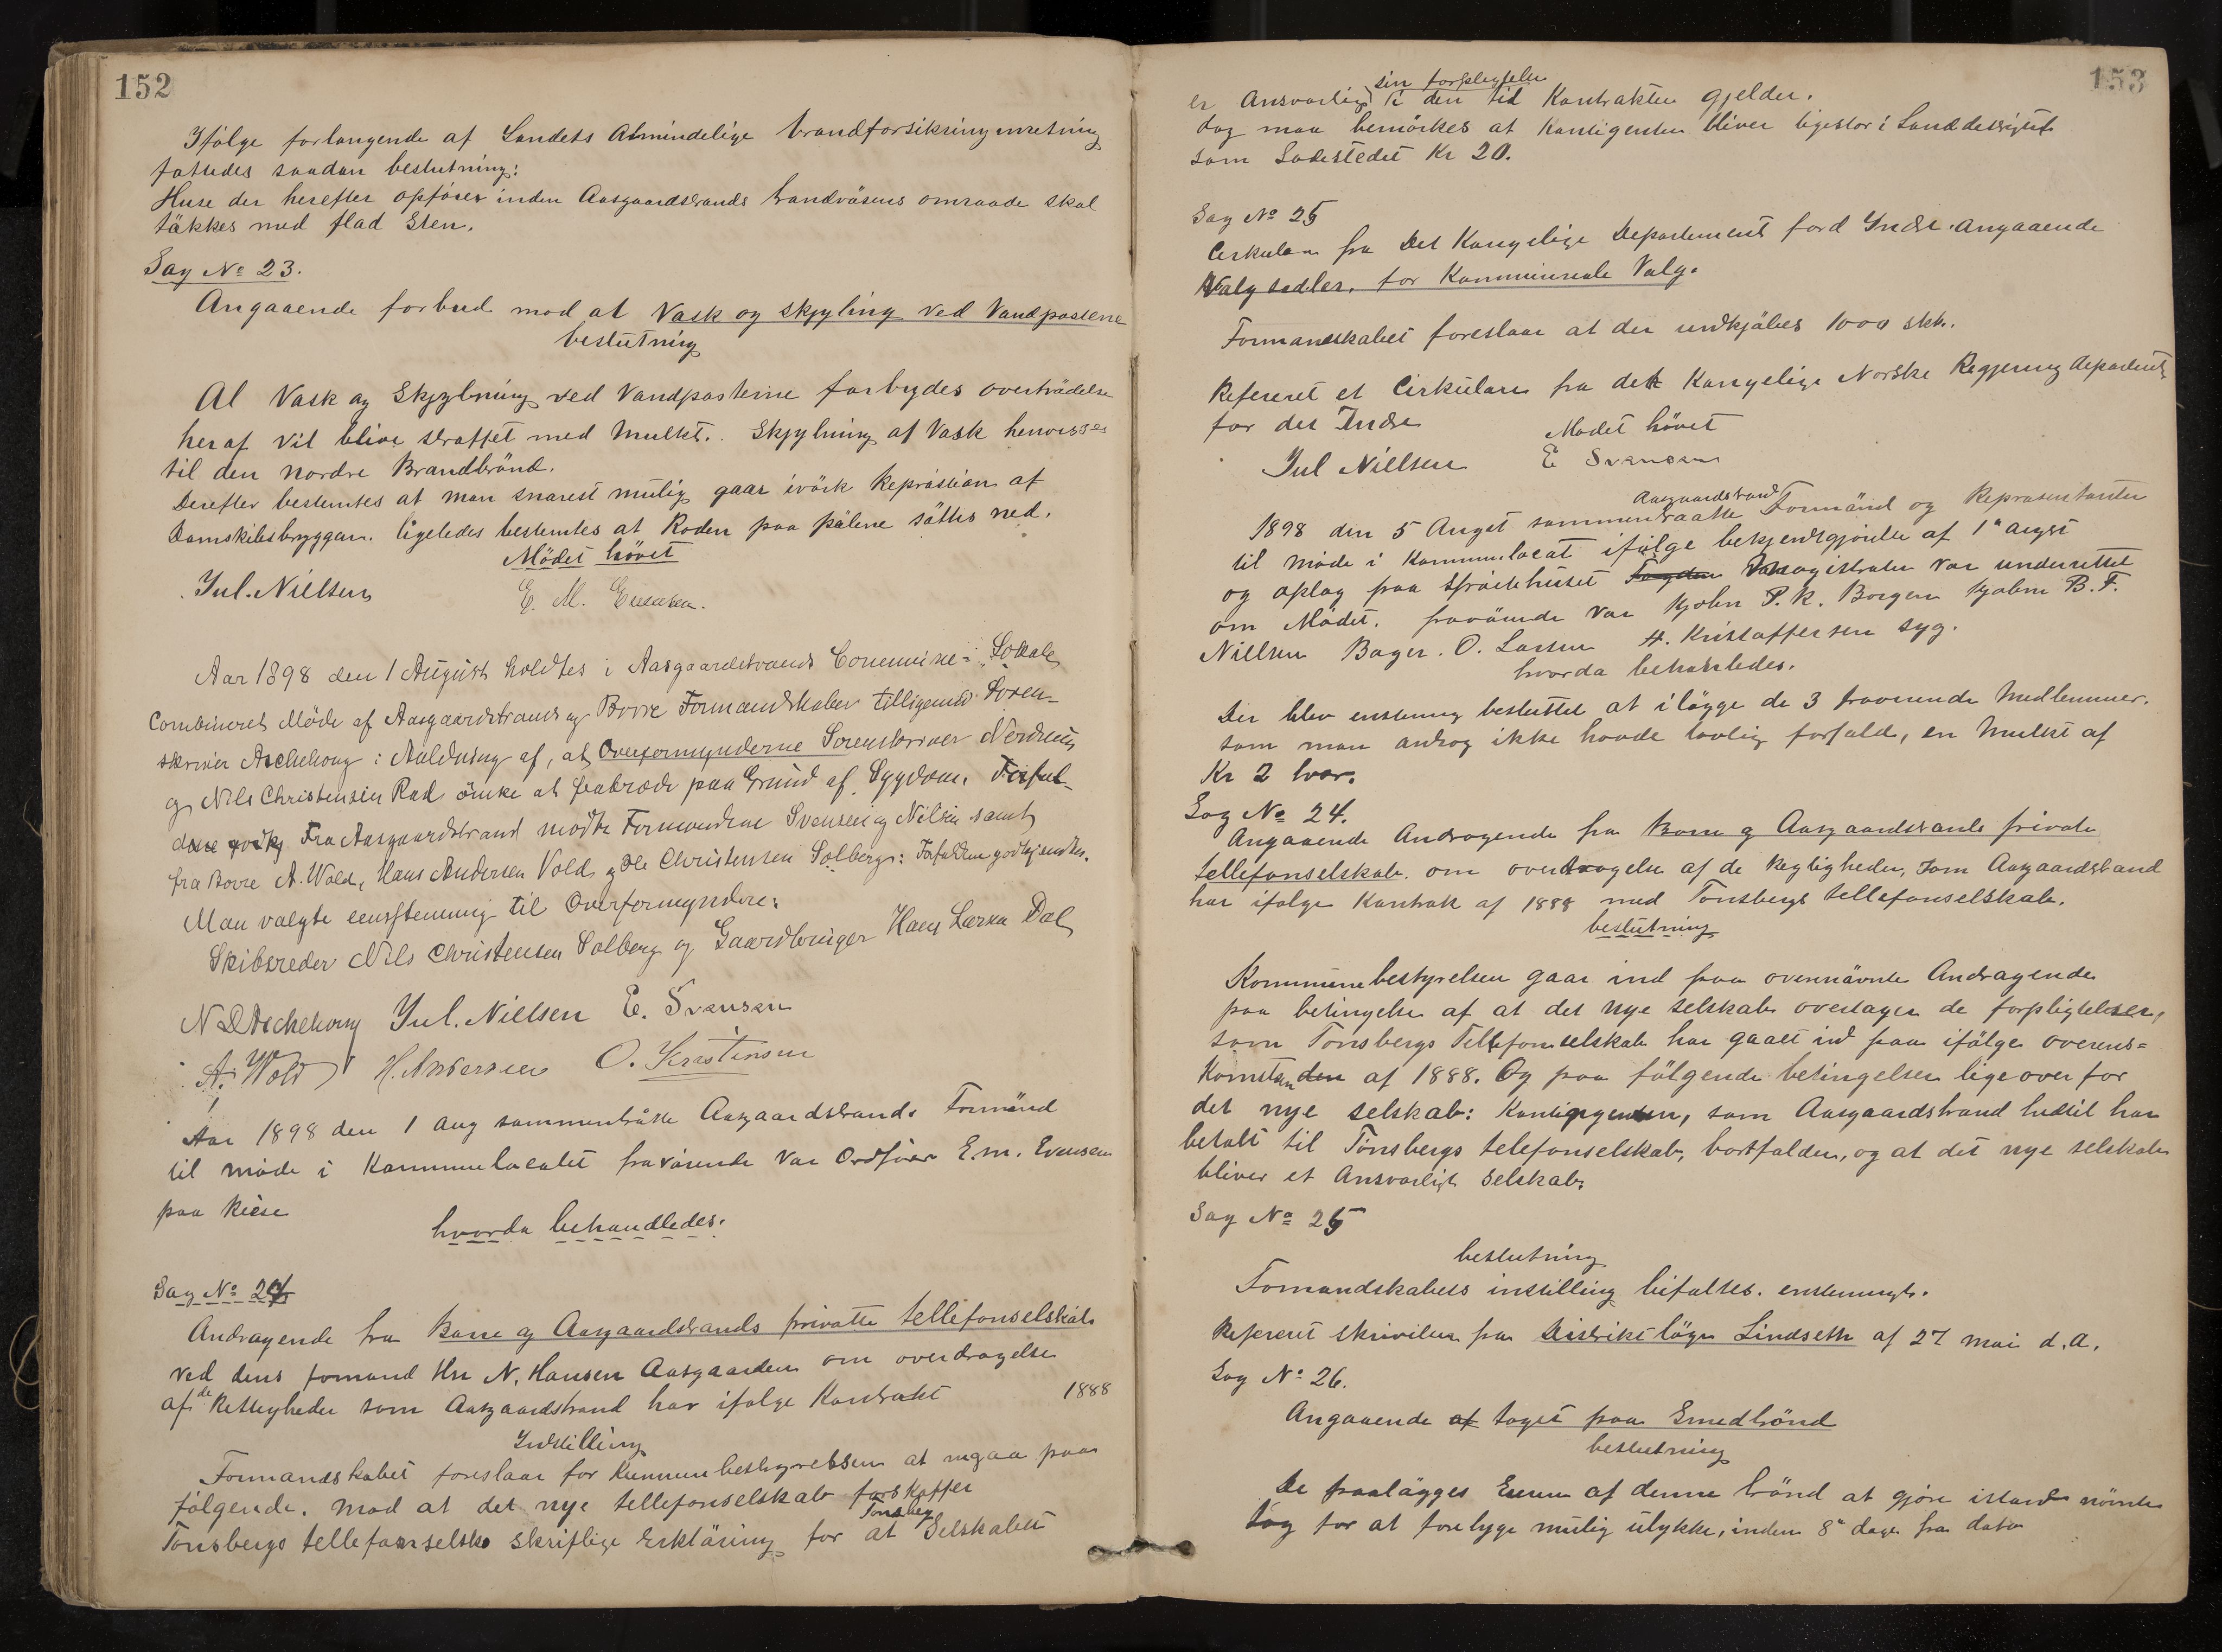 152
Ifølge forlangende af Landets Almindelige brandforsikring inretning
fattedes saadan beslutning:
Huse der herefter opføres inden Aasgaardstrands brandväsens omraade skal
täkkes med flad Sten.
Sag No 23.
Angaaende forbud mod at Vask og skyling ved Vandpostene
beslutning
Al Vask og Skylning ved Vandposterne forbydes overträdelse
heraf vil blive straffet med Mulkt. Skylning af Vask henvisses
til den nordre Brandbrönd.
Derefter bestemtes at man snarest mulig gaar ivärk Reprästion af
Damskibsbryggen. ligeledes bestemtes at Roden paa pälene sättes ned.
Mödet hövet
Jul. Nielsen E. M. Evensen.
Aar 1898 den 1 August holdtes i Aasgaardstrands Commune-Lokale
Combineret Möde af Aasgaardstrands og Borre Formandskaber tilligemed Soren-
skriver Aschehoug i Anledning af, at Overformynderne Sorenskriver Nordrum
og Nils Christensen Rød önske at fratræde paa Grund af Sygdom. Forful-
dene godkj Fra Aasgaardstrand mødte Formændene Svensen og Nilsen samt
fra Borre A. Wold, Hans Andersen Vold og Ole Christensen Solberg: Forfaldene godkjendtes.
Man valgte eenstemmig til Overformyndere:
Skibsreder Nils Christensen Solberg og Gaardbruger Hans Larsen Dal
N D Aschehoug Jul. Nielsen E. Svensen
A. Wold H. Andersen O. Kristinsen
Aar 1898 den 1 Aug sammentråtte Aasgaardstrands Formänd
til möde i Kommunelocalet fravärende var Ordförer E. m. Evensen
paa Reise
hvorda behandledes:
Sag No 24
Andragende fra Borre og Aasgaardstrands privatte tellefonselskab
ved dens formand Hr N. Hansen Aasgaarden om overdragelse
af de Rettigheder som Aasgaardstrand har ifölge Kontrakt 1888
Indstilling
Formandskabet foreslaar for Kummunbestyrelsen at ingaa paa
følgende. mod at det nye tellefonselskab forskaffer
Tönsbergs tellefonselsks skriftlige Erklæring for at Tönsberg Selskabet
153
er Ansvarlig sin forpligtelse i den tid Kontrakten gjelder.
dog maa bemörkes at Kontigenten bliver ligestor i Landdestriktet
som Ladestedet Kr 20.
Sag No 25
Cirkulær fra Det Kongelige Departement for d Indre Angaaende
Valgsedler for Kommunale Valg.
Formandskabet foreslaar at der indkjöbes 1000 stk.
Refereret et Cirkulære fra det Kongelige Norske Regjering departement
for det Indre Mødet hövet
Jul Nielsen E Svensen
1898 den 5 Augst sammentraatte Aasgaardstrand Formänd og Repræsentanter
til möde i Kommunelocat ifölge bekjendtgjörelse af 1ste augst
og oplag paa Spröitehuset Magistraten var underrettet
om Mödet. fravärende var Kjøbm P. K. Borgen Kjøbm B. F.
Nielsen Bager. O. Larsen H. Kristoffersen syg.
hvorda behandledes.
Der blev enstemig besluttet at ilägge de 3 fravärende Medlemmer.
som man antog ikke havde lovlig forfald, en Mulkt af
Kr 2 hver.
Sag No 24.
Angaaende Andragende fra Borre og Aasgaardstrands private
tellefonselskab. om overdragelse af de Regtigheder, som Aasgaardstrand
har ifølge Kontrak af 1888 med Tönsbergs tellefonselskab.
beslutning
Kommunebestyrelsen gaar ind paa ovennävnte Andragende
paa betingelse af at det nye selskab overtager de forpligtelser,
som Tönsbergs Tellefonselskab har gaaet ind paa ifölge overens=
komsten af 1888. Og paa fölgende betingelser lige over for
det nye selskab: Kontingenten, som Aasgaardstrand hidtil har
betalt til Tönsbergs telefonselskab, bortfalder, og at det nye selskab
bliver et Ansvarligt selskab.
Sag No 25
beslutning
Formandskabets instilling bifaltes. enstemmigt.
Refereret skrivelse fra Distriktsläge Lindseth af 27 mai d.A.
Sag No 26.
Angaaende af taget paa Smedbrönd
beslutning
De paalägges Eieren af denne brönd at gjöre istand nömte
tag for at forebyge mulig ulykke, inden 8te dage fra dato